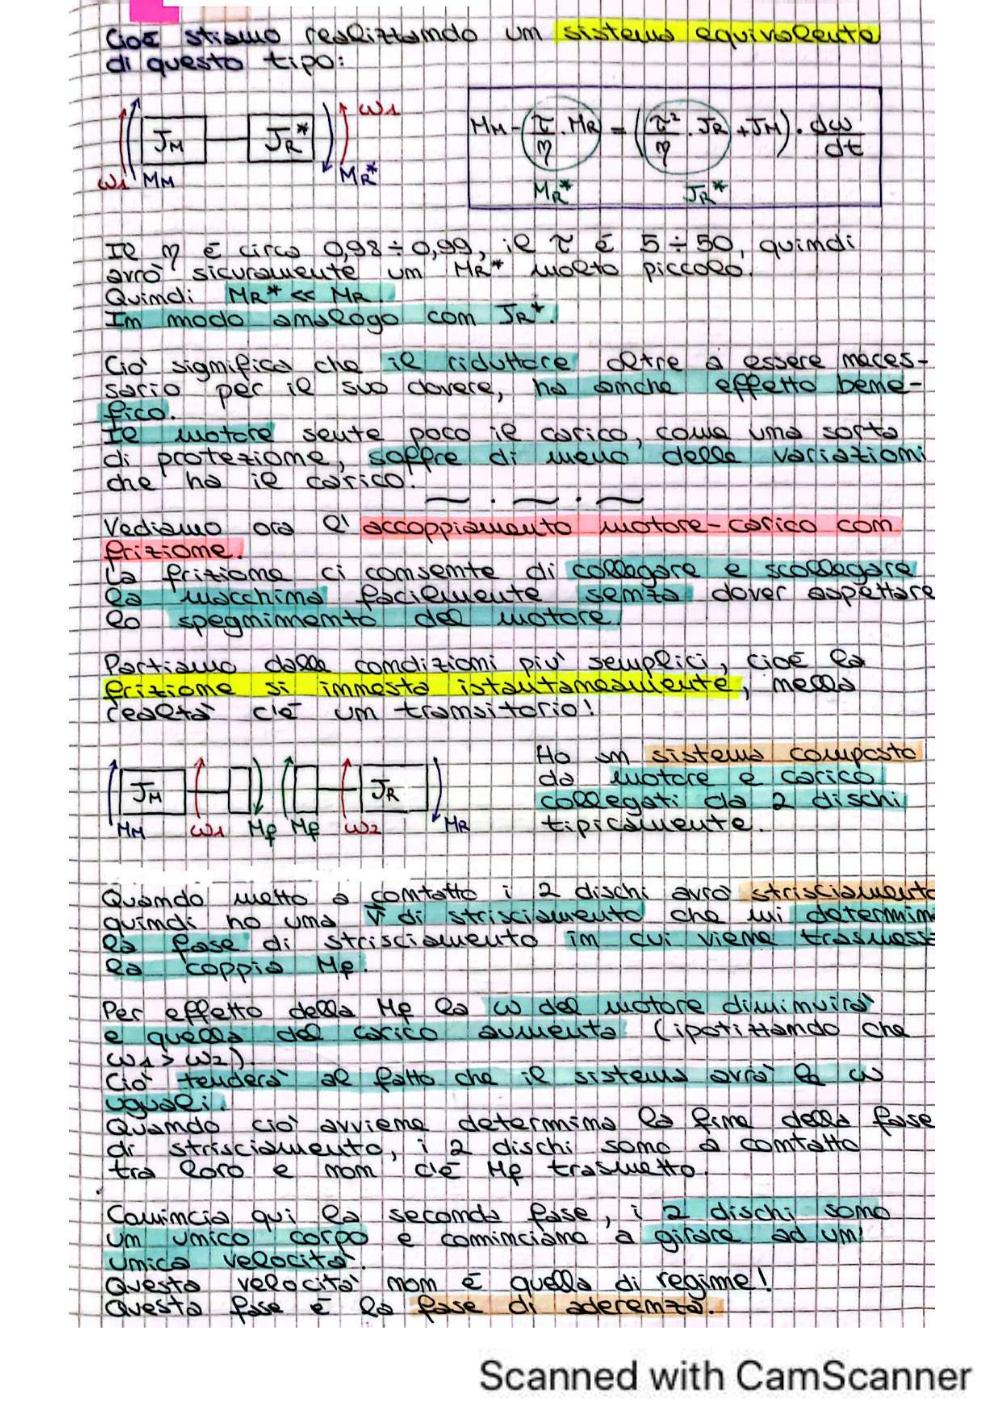 Cioè stiamo realizzando un sistema equivalente
di questo tipo:
JM JR* ω1
ω1 MM MR*
MM - τ/η · MR = (τ²/η · JR + JM) · dω/dt
MR* JR*
Il η è circa 0,98 ÷ 0,99, il τ è 5 ÷ 50, quindi
avrò sicuramente un MR* molto piccolo.
Quindi MR* << MR.
In modo analogo con JR*.
Ciò significa che il riduttore oltre a essere neces-
sario per il suo dovere, ha anche effetto bene-
fico.
Il motore sente poco il carico, come una sorta
di protezione, soffre di meno delle variazioni
che ha il carico!
Vediamo ora l'accoppiamento motore-carico con
frizione.
La frizione ci consente di collagare e scollagare
la macchina facilmente senza dover aspettare
lo spegnimento del motore.
Partiamo dalle condizioni più semplici, cioè la
frizione si innesta istantaneamente, nella
realtà c'è un transitorio!
JM JR
MM ω1 Mf Mf ω2 MR
Ho un sistema composto
da motore e carico
collegati da 2 dischi
tipicamente.
Quando metto a contatto i 2 dischi avrò strisciamento
quindi ho una V di strisciamento che mi determin
la fase di strisciamento in cui viene trasmess
la coppia Mf.
Per effetto della Mf la ω del motore diminuirà
e quella del carico aumenta (ipotizzando che
ω1 > ω2).
Ciò tenderà al fatto che il sistema avrà le ω
uguali.
Quando ciò avviene determina la fine della fase
di strisciamento, i 2 dischi sono a contatto
tra loro e non c'è Mf trasmetto.
Comincia qui la seconda fase, i 2 dischi sono
un unico corpo e cominciano a girare ad un'
unica velocità.
Questa velocità non è quella di regime!
Questa fase è la fase di aderenza.
Scanned with CamScanner